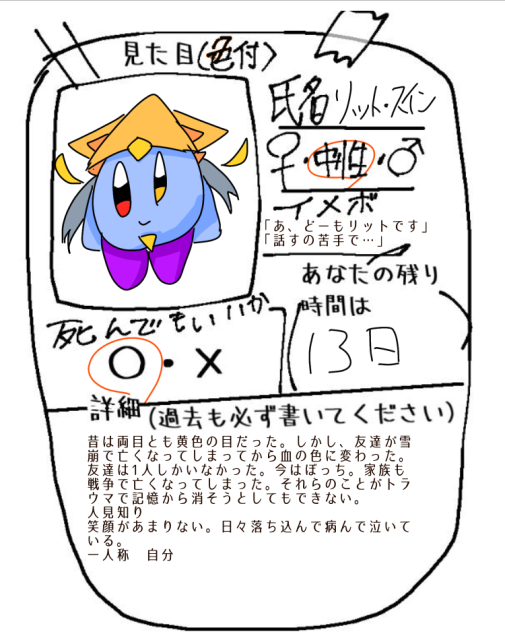 見た目(色付)
氏名 リット・スイン
♀・中性・♂
イメボ
「あ、どーもリットです」
「話すの苦手で…」
あなたの残り
時間は
13日
死んでもいいか
○・×
詳細(過去も必ず書いてください)
昔は両目とも黄色の目だった。しかし、友達が雪
崩で亡くなってしまってから血の色に変わった。
友達は1人しかいなかった。今はぼっち。家族も
戦争で亡くなってしまった。それらのことがトラ
ウマで記憶から消そうとしてもできない。
人見知り
笑顔があまりない。日々落ち込んで病んで泣いて
いる。
一人称 自分